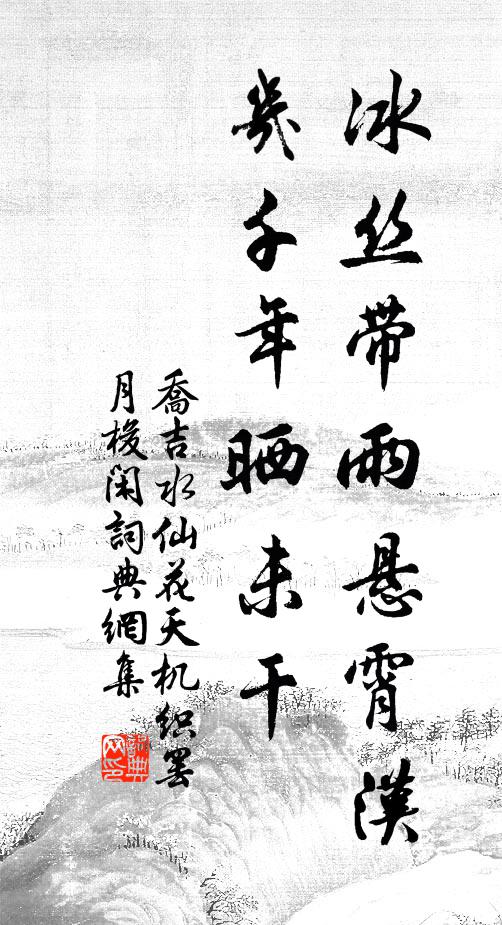 冰丝带雨悬霄汉
几千年晒未干
喬吉水仙花天机织罢
月梭闲詞典網集
詞典网印